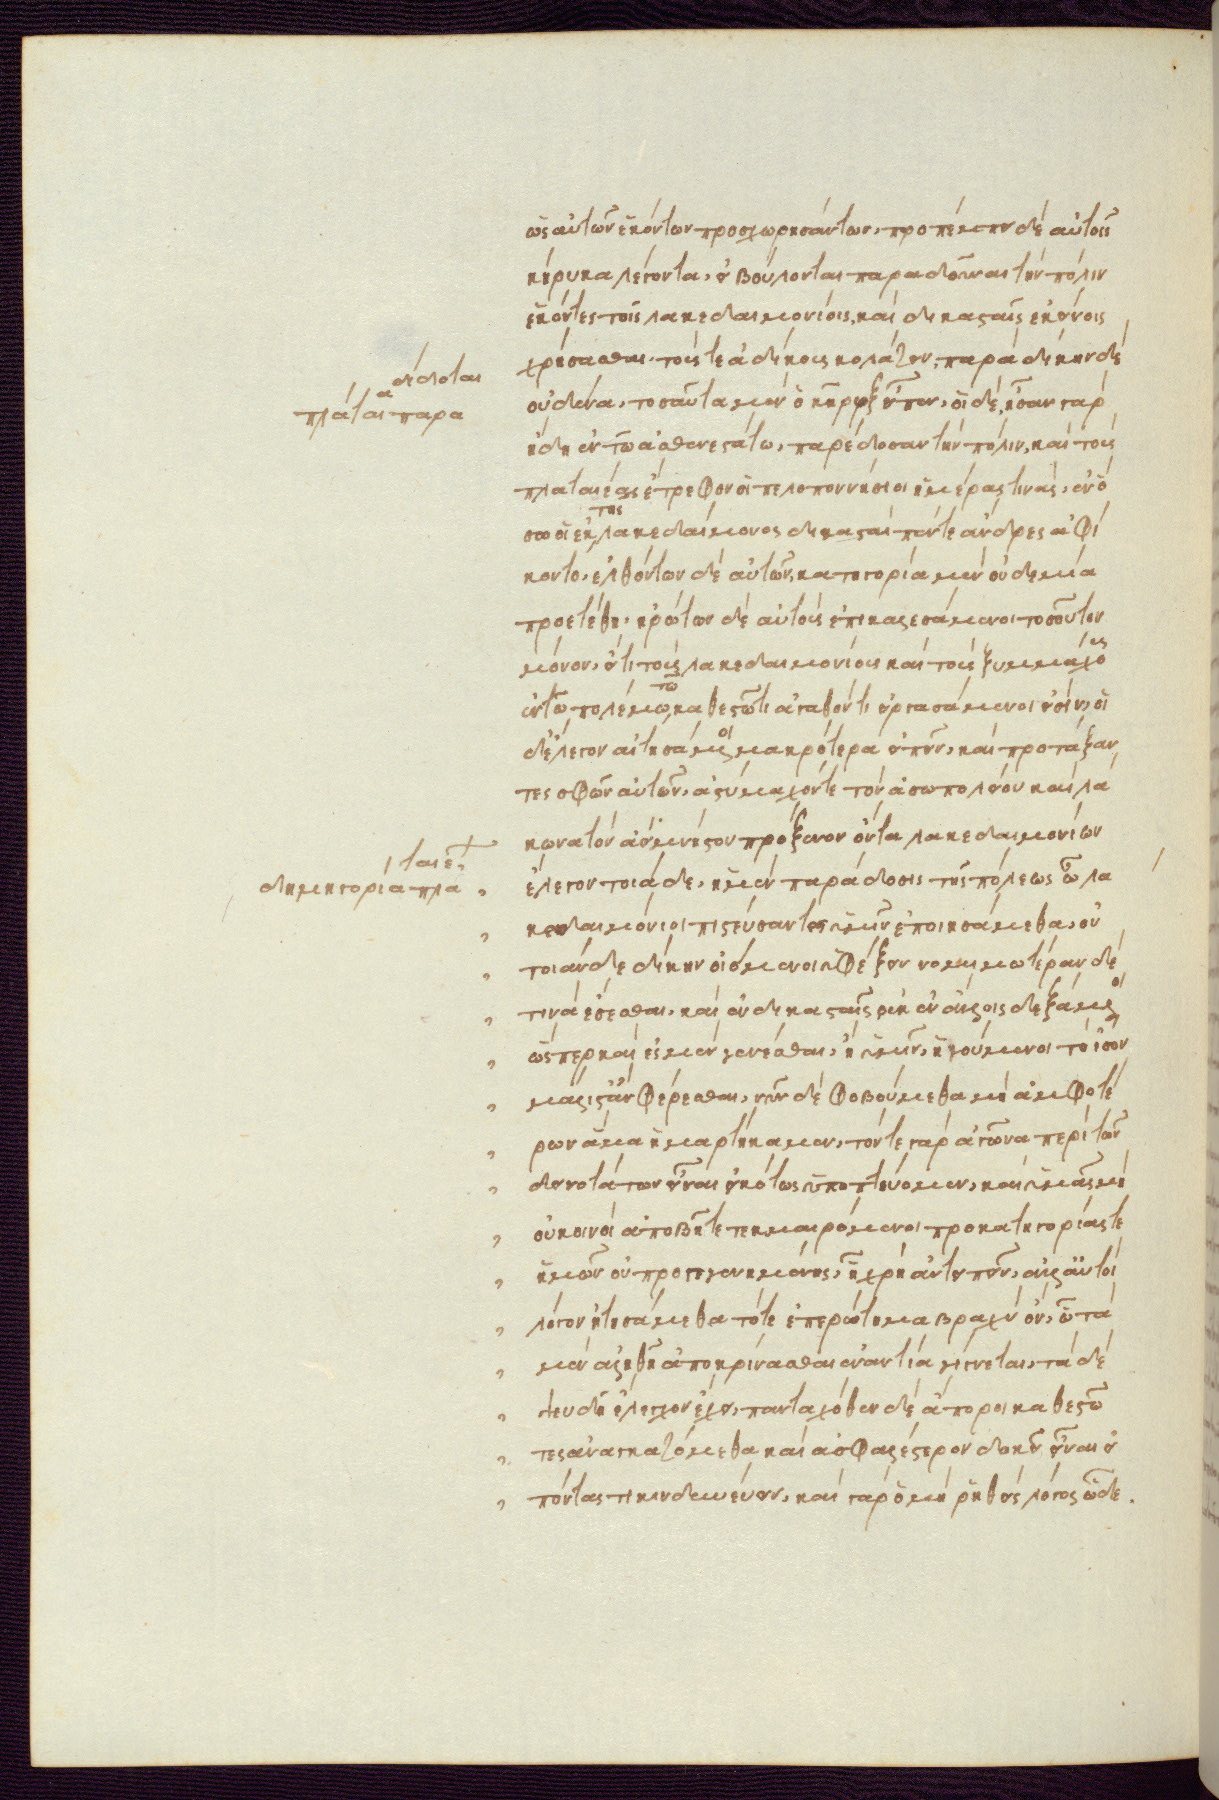 ὡς αὐτῶν ἑκόντων προσχωρησάντων, προπέμπει δὲ αὐτοῖς
κήρυκα λέγοντα, εἰ βούλονται παραδοῦναι τὴν πόλιν
ἑκόντες τοῖς λακεδαιμονίοις, καὶ δικασταῖς ἐκείνοις
χρήσασθαι, τούς τε ἀδίκους κολάζειν, παρὰ δίκην δὲ
δίδοται
πλάταια παρα
οὐδένα, τοσαῦτα μὲν ὁ κῆρυξ εἶπεν, οἱ δὲ, ἦσαν γὰρ
ἤδη ἐν τῶ ἀσθενεστάτω, παρέδοσαν τὴν πόλιν, καὶ τοὺς
πλαταιέας ἔτρεφον οἱ πελοποννήσιοι ἡμέρας τινάς, ἐν ὅ
σω οἱ ἐκ της λακεδαίμονος δικασταὶ πέντε ἄνδρες ἀφί
κοντο, ἐλθόντων δὲ αὐτῶν, κατηγορία μὲν οὐδεμία
προετέθη, ἠρώτων δὲ αὐτοὺς ἐπικαλεσάμενοι τοσοῦτον
μόνον, εἴ τι τοὺς λακεδαιμονίους καὶ τοὺς ξυμμάχους
ἐν τῶ πολέμω τῶ καθεστῶτι ἀγαθόν τι εἰργασάμενοι εἰσίν, οἱ
δ' ἔλεγον αἰτησάμενοι μακρότερα εἰπεῖν, καὶ προτάξαν
τες σφῶν αὐτῶν, ἀστύμαχόν τε τὸν ἀσωπολάου καὶ λά
κωνα τὸν ἀειμνήστου πρόξενον ὄντα λακεδαιμονίων
ταιέ
δημηγορία πλα
ἔλεγον τοιάδε, τὴν μὲν παράδοσιν τῆς πόλεως ὦ λα
κεδαιμόνιοι πιστεύσαντες ὑμῖν ἐποιησάμεθα, οὐ
τοιάνδε δίκην οἰόμενοι ὑφέξειν νομιμωτέραν δέ
τινα ἔσεσθαι, καὶ ἐν δικασταῖς οὐκ ἐν ἄλλοις δεξάμενοι
ὥσπερ καὶ ἐσμὲν γενέσθαι, ἢ ὑμῖν, ἡγούμενοι τὸ ἴσον
μάλιστ' ἂν φέρεσθαι, νῦν δὲ φοβούμεθα μὴ ἀμφοτέ
ρων ἅμα ἡμαρτήκαμεν, τόν τε γὰρ ἀγῶνα περὶ τῶν
δεινοτάτων εἶναι εἰκότως ὑποπτεύομεν, καὶ ὑμᾶς μὴ
οὐ κοινοὶ ἀποβῆτε τεκμαιρόμενοι προκατηγορίας τε
ἡμῶν οὐ προγεγενημένης, ᾗ χρὴ ἀντειπεῖν, ἀλλ' αὐτοὶ
λόγον ᾐτησάμεθα τό τε ἐπερώτημα βραχὺ ὄν, ὧ τὰ
μὲν ἀληθῆ ἀποκρίνασθαι ἐναντία γίγνεται, τὰ δὲ
ψευδῆ ἔλεγχον ἔχει, πανταχόθεν δὲ ἄποροι καθεστῶ
τες ἀναγκαζόμεθα καὶ ἀσφαλέστερον δοκεῖ εἶναι εἰ
πόντας τι κινδυνεύειν, καὶ γὰρ ὁ μὴ ῥηθεὶς λόγος ὧδε.